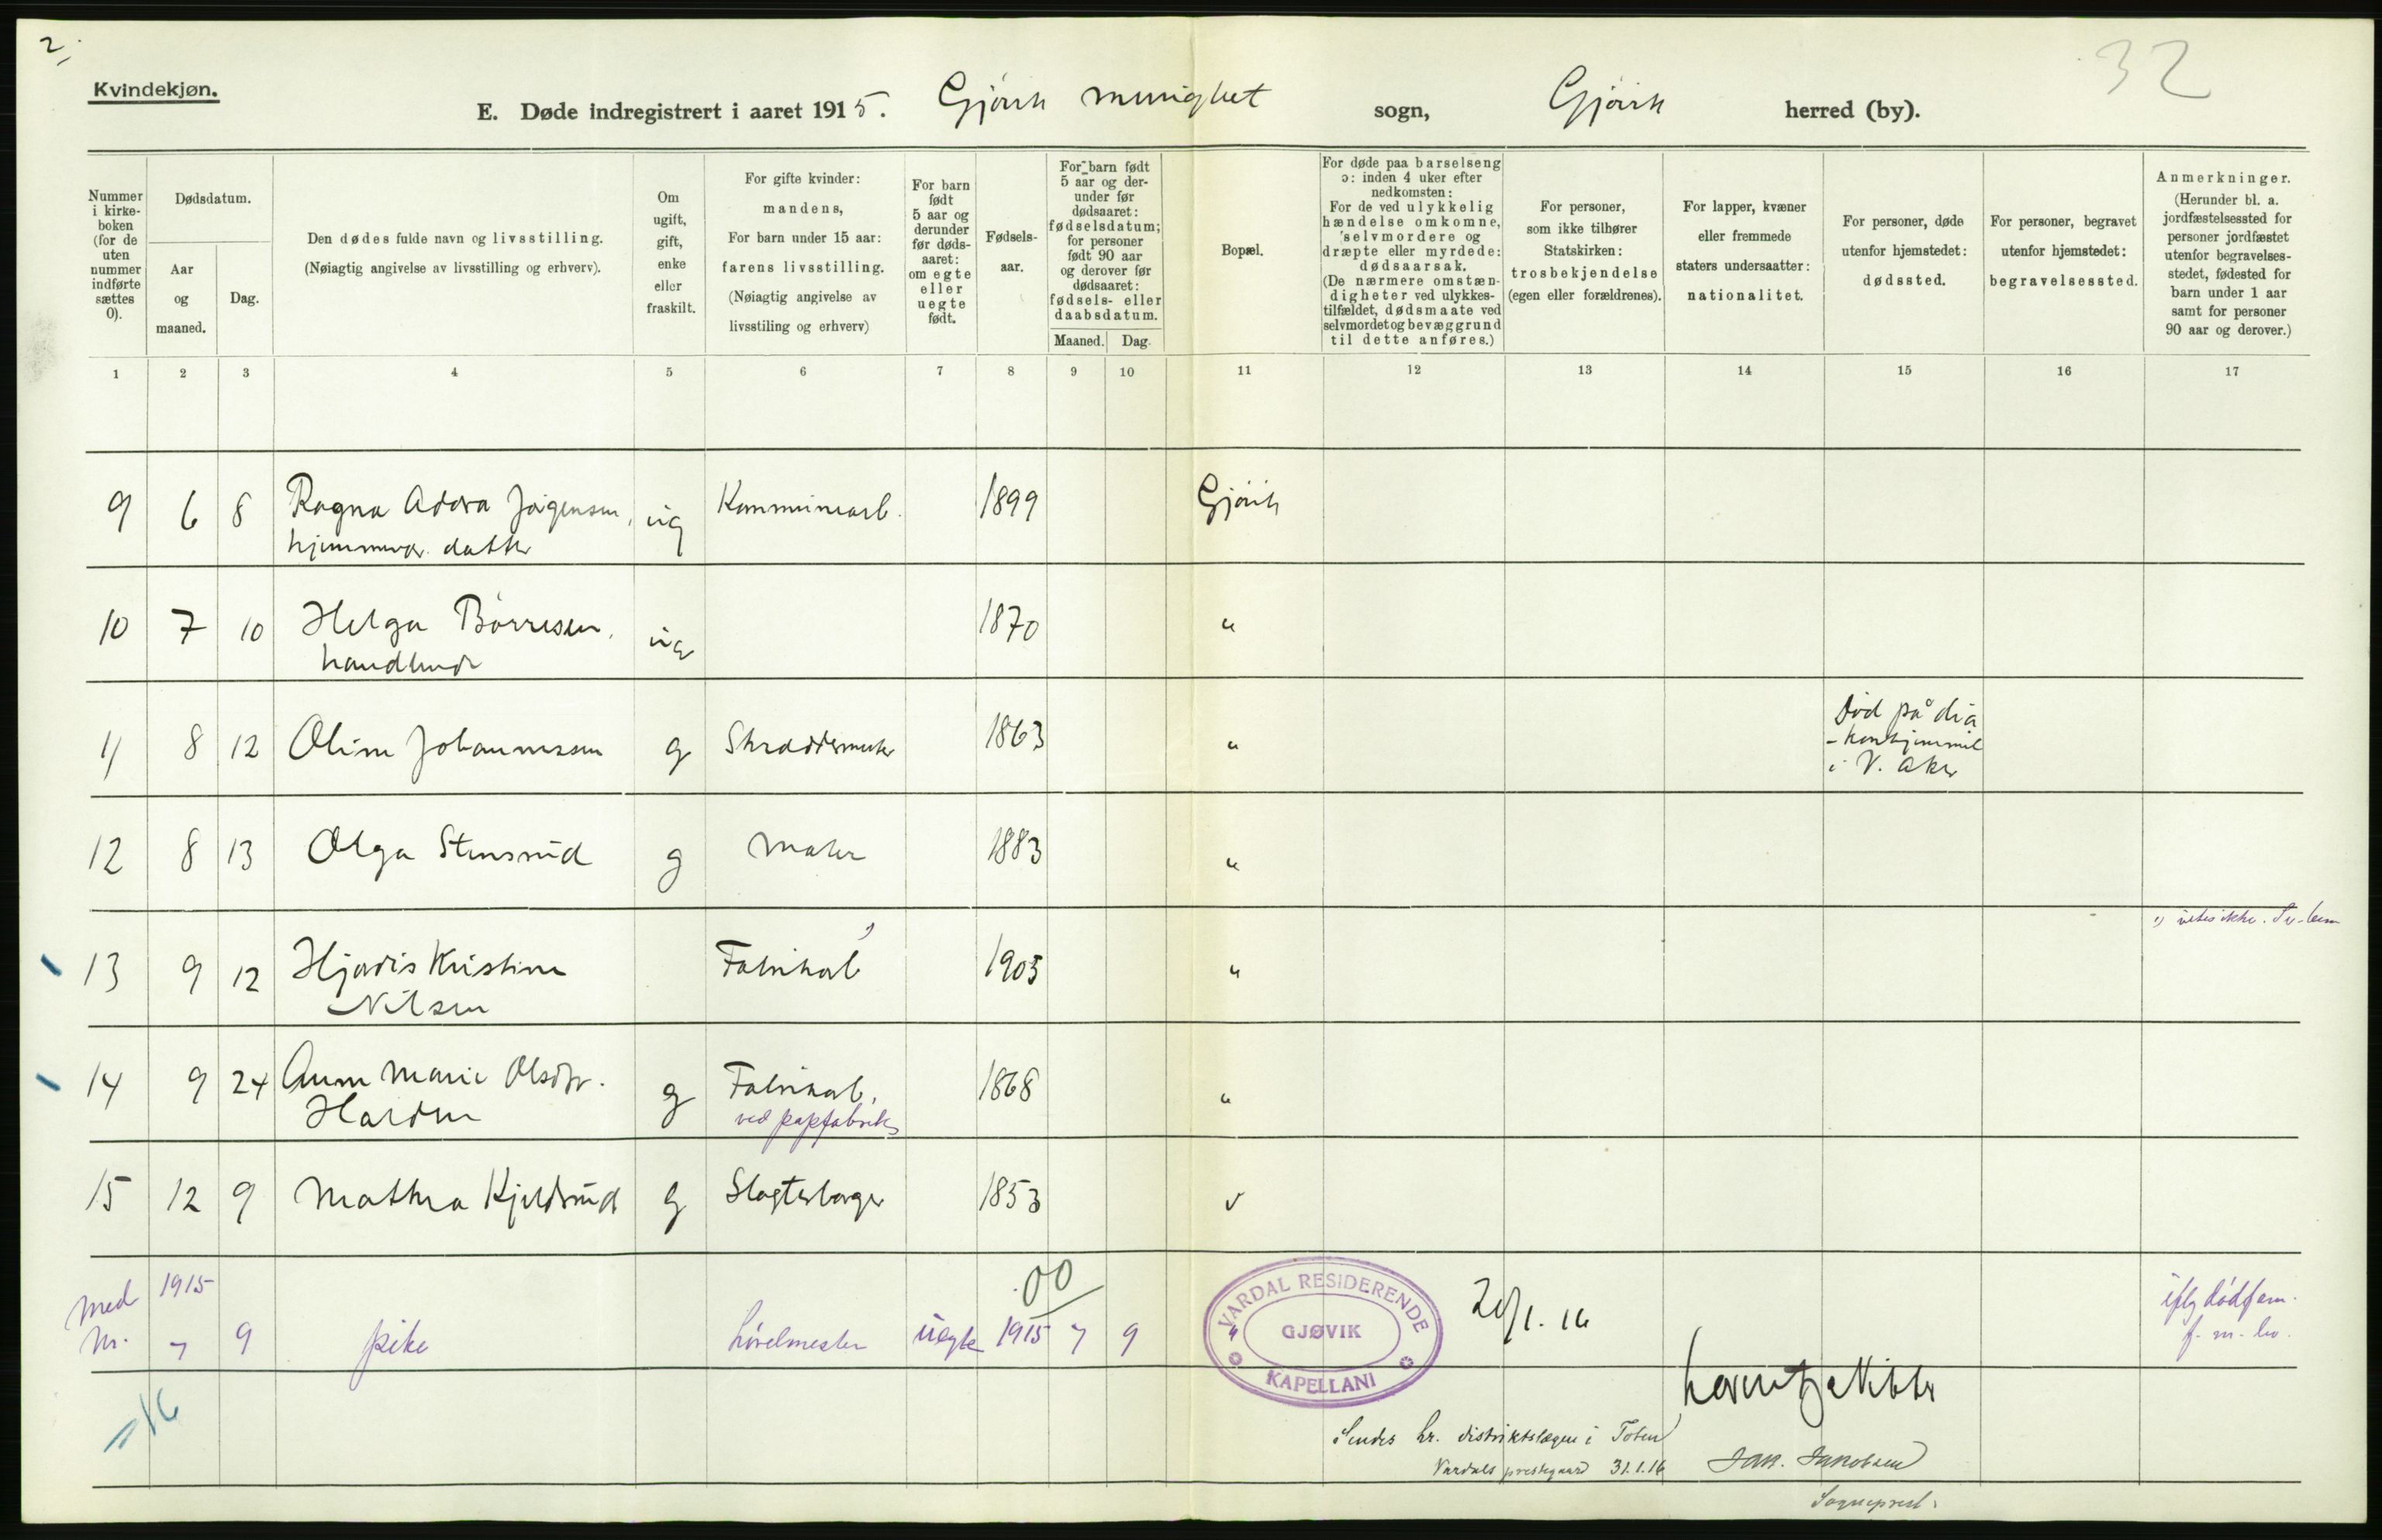 2.
32
Kvindekjøn.
E. Døde indregistrert i aaret 1915. Gjøvik menighet sogn, Gjøvik herred (by).
Nummer i kirke-boken (for de uten nummer indførte sættes 0).
Dødsdatum.
Aar og maaned.
Dag.
Den dødes fulde navn og livsstilling.
(Nøiagtig angivelse av livsstilling og erhverv).
Om ugift, gift, enke eller fraskilt.
For gifte kvinder: mandens,
For barn under 15 aar: farens livsstilling.
(Nøiagtig angivelse av livsstiling og erhverv)
For barn født 5 aar og derunder før døds-aaret: om egte eller uegte født.
Fødsels-aar.
For barn født 5 aar og der-under før dødsaaret: fødselsdatum; for personer født 90 aar og derover før dødsaaret: fødsels- eller daabsdatum.
Maaned.
Dag.
Bopæl.
For døde paa barselseng ɔ: inden 4 uker efter nedkomsten:
For de ved ulykkelig hændelse omkomne, selvmordere og dræpte eller myrdede: dødsaarsak.
(De nærmere omstæn-digheter ved ulykkes-tilfældet, dødsmaate ved selvmordet og bevæggrund til dette anføres.)
For personer, som ikke tilhører Statskirken: trosbekjendelse (egen eller forældrenes).
For lapper, kvæner eller fremmede staters undersaatter: nationalitet.
For personer, døde utenfor hjemstedet: dødssted.
For personer, begravet utenfor hjemstedet: begravelsessted.
Anmerkninger.
(Herunder bl. a. jordfæstelsessted for personer jordfæstet utenfor begravelses-stedet, fødested for barn under 1 aar samt for personer 90 aar og derover.)
1 2 3 4 5 6 7 8 9 10 11 12 13 14 15 16 17
9 6 8 Ragna Jørgensen, ug Kommunearb. 1899 Gjøvik
hjemmevær. datter
10 7 10 Helga Børresen, ug 1870 "
handlende
11 8 12 Oline Johannessen g Skræddermester 1863 " Død på dia
-konhjemmet
i V. Aker
12 8 13 Olga Stensrud g Maler 1883 "
13 9 12 Hjørdis Kristine Fabrikarb 1903 "
Nilsen
14 9 24 Anne Marie Olsdtr. g Fabrikarb. 1868 "
ved papfabrik
15 12 9 Mathea Kjeldsrud g Slagterborger 1853 "
Med 1915
Nr. 7 9 pike uegte 1915 7 9
00
VARDAL RESIDERENDE
GJØVIK
KAPELLANI
1.16
Sendes hr. distriktslægen i Toten
Vardals prestegaard 31.1.16 Jak. Jakobsen
Sogneprest.